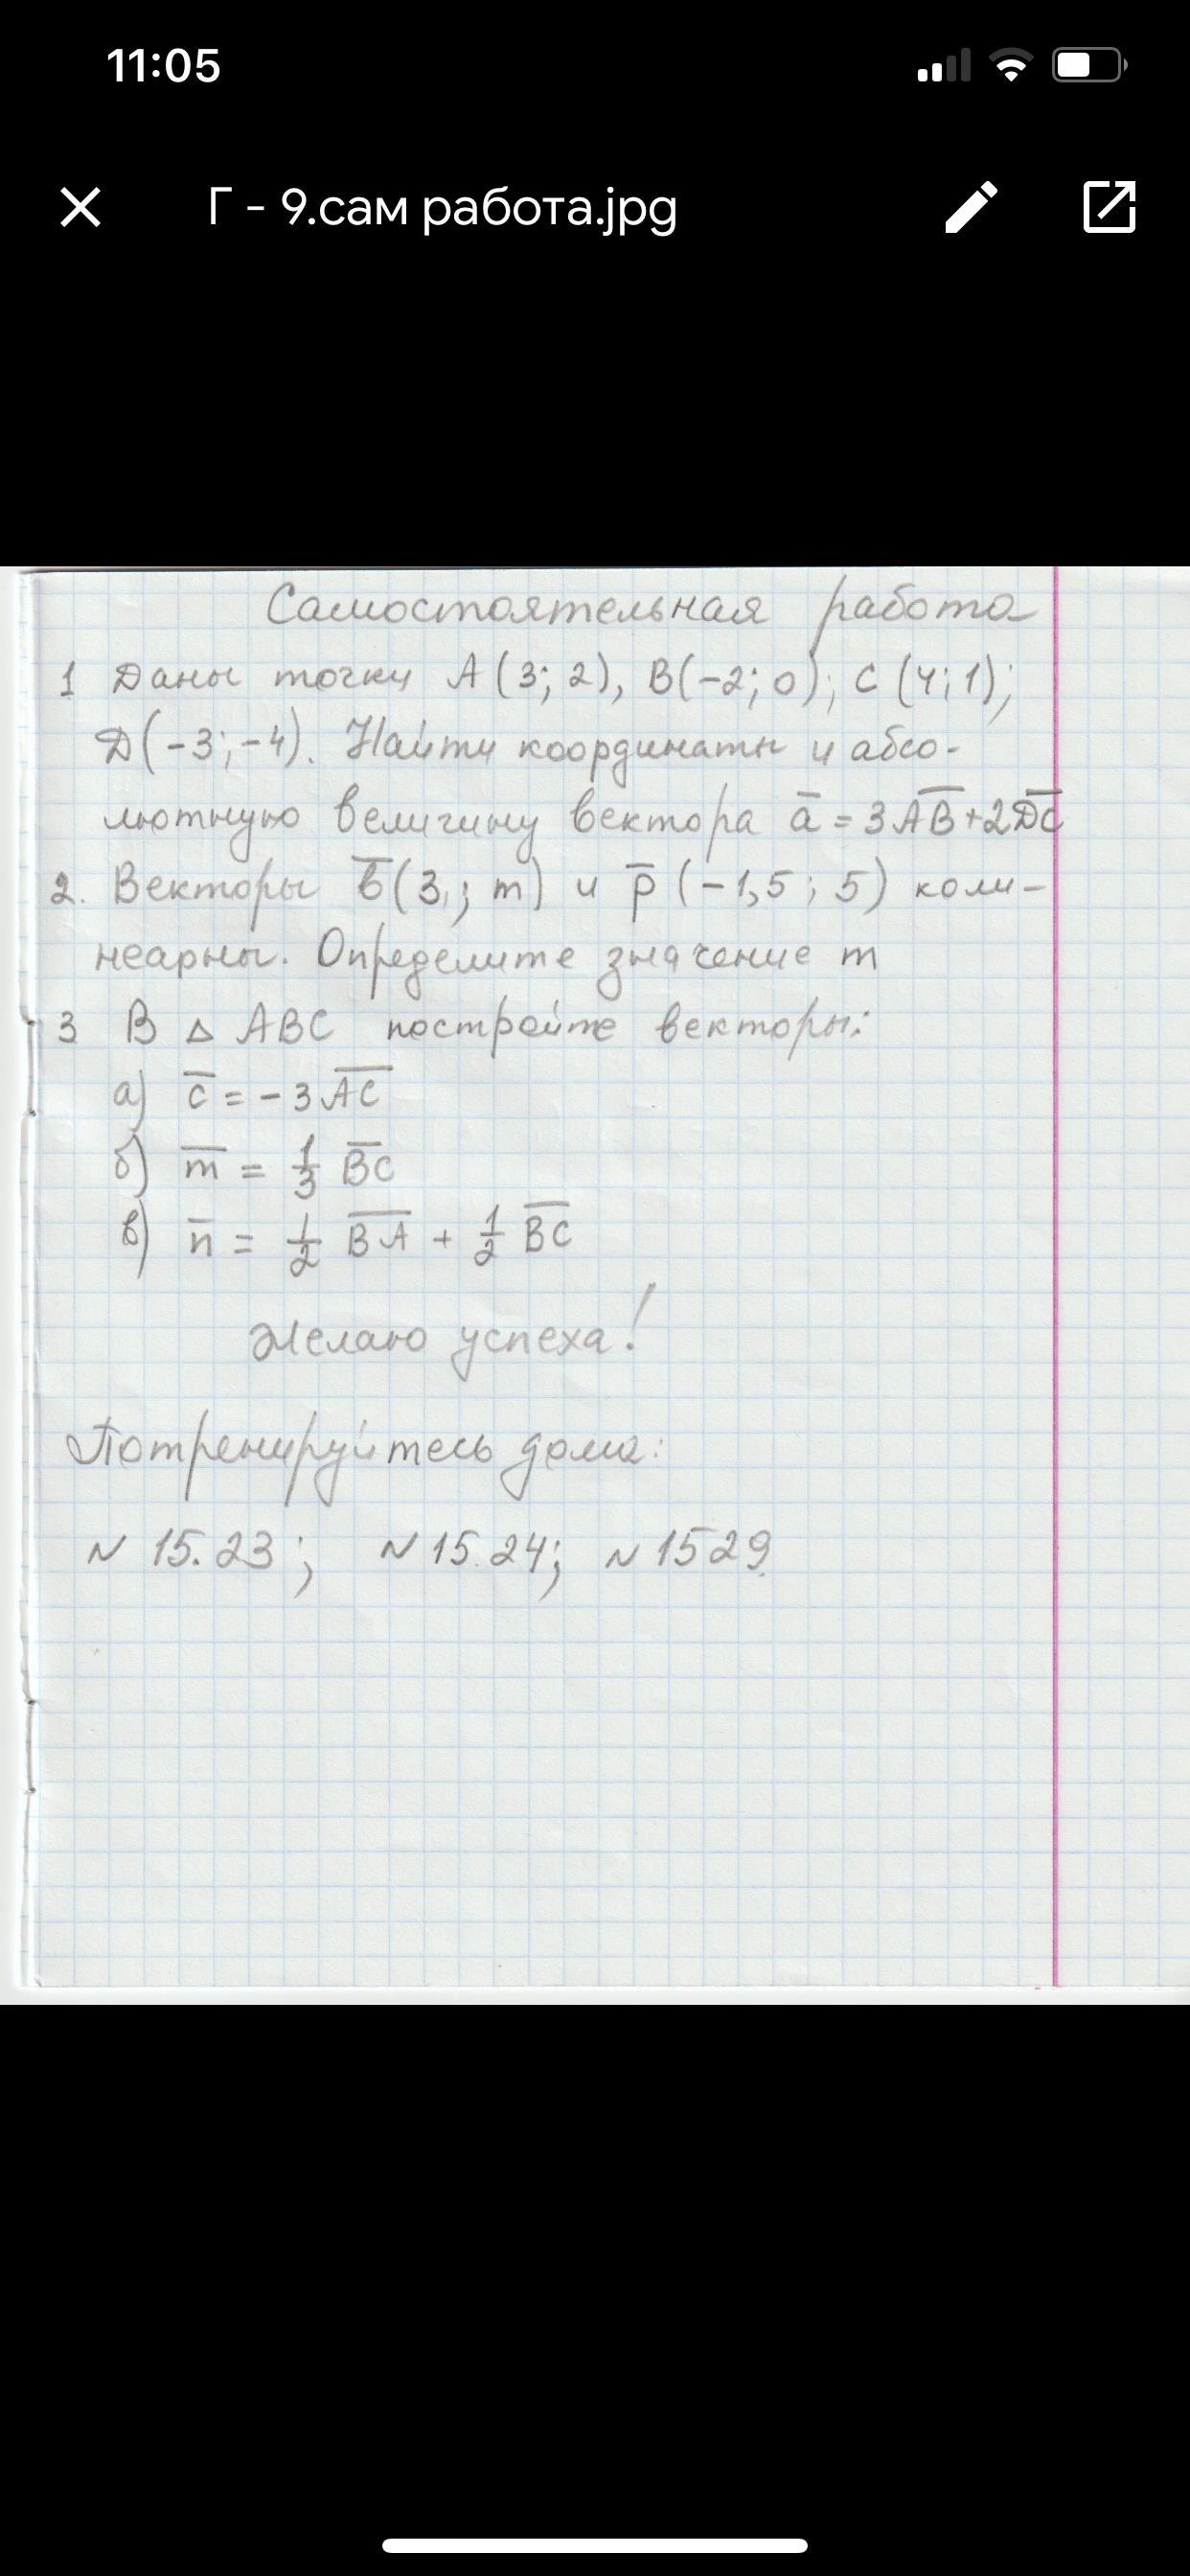 11:05
Г - 9.сам работа.jpg
Самостоятельная работа
1 Даны точки A(3; 2), B(-2; 0); C (4; 1);
D(-3; -4). Найти координаты и абсо-
лютную величину вектора a̅ = 3A̅B̅+2D̅C̅
2. Векторы b̅(3; m) и p̅ (-1,5; 5) коли-
неарны. Определите значение m
3 В △ ABC постройте векторы:
а) c̅ = -3A̅C̅
б) m̅ = 1/3 B̅C̅
в) n̅ = 1/2 B̅A̅ + 1/2 B̅C̅
Желаю успеха!
Потренируйтесь дома:
N 15.23; N 15.24; N 1529.